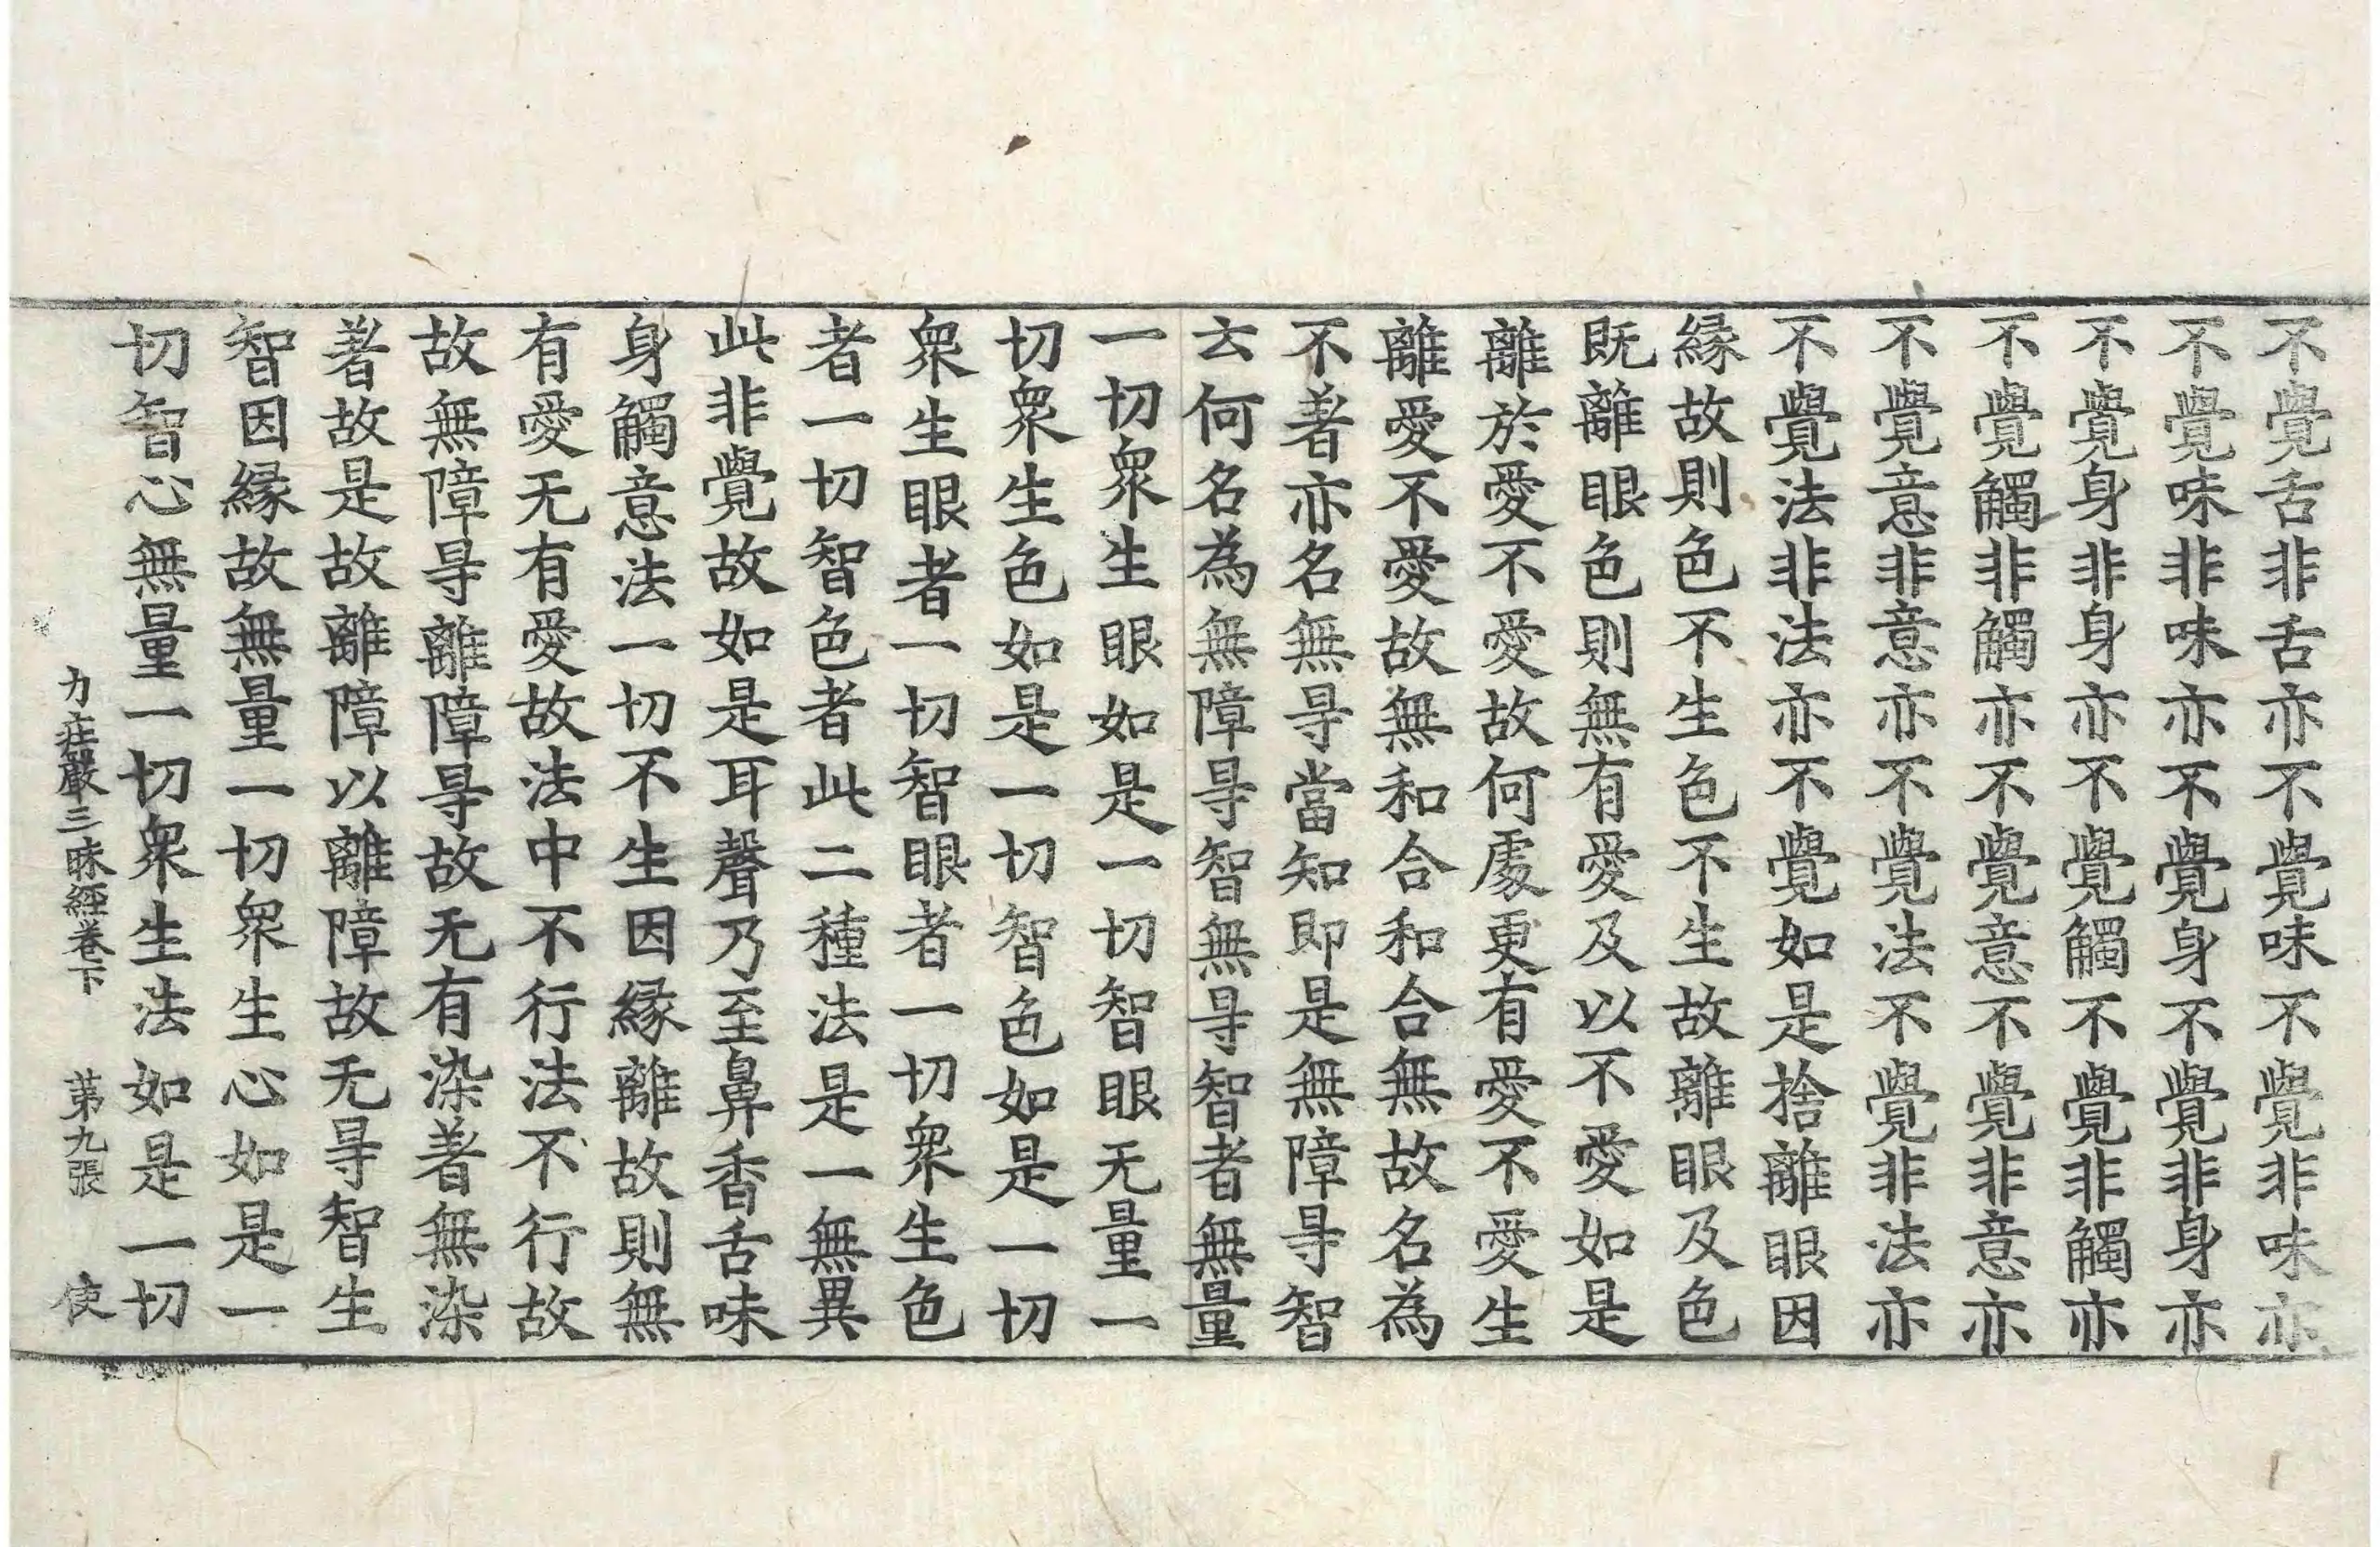 不覺舌非舌亦不覺味不覺非味亦
不覺味非味亦不覺身不覺非身亦
不覺身非身亦不覺觸不覺非觸亦
不覺觸非觸亦不覺意不覺非意亦
不覺意非意亦不覺法不覺非法亦
不覺法非法亦不覺如是捨離眼因
緣故則色不生色不生故離眼及色
既離眼色則無有愛及以不愛如是
離於愛不愛故何處更有愛不愛生
離愛不愛故無和合和合無故名為
不著亦名無㝵當知即是無障㝵智
云何名為無障㝵智無㝵智者無量
一切衆生眼如是一切智眼无量一
切衆生色如是一切智色如是一切
衆生眼者一切智眼者一切衆生色
者一切智色者此二種法是一無異
此非覺故如是耳聲乃至鼻香舌味
身觸意法一切不生因緣離故則無
有愛无有愛故法中不行法不行故
故無障㝵離障㝵故无有染著無染
著故是故離障以離障故无㝵智生
智因緣故無量一切衆生心如是一
切智心無量一切衆生法如是一切
力莊嚴三昧經卷下 第九張 使